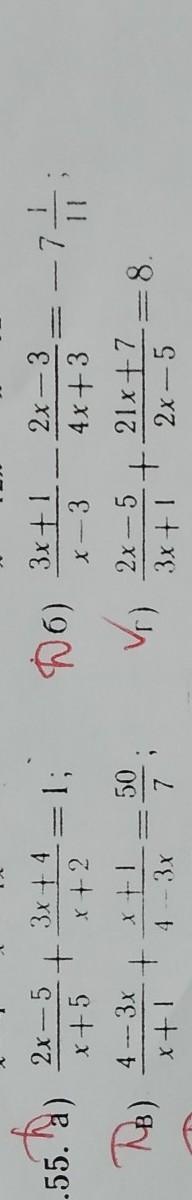 .55. а) (2x−5)/(x+5) + (3x+4)/(x+2) = 1;
б) (3x+1)/(x−3) − (2x−3)/(4x+3) = −7 1/11;
в) (4−3x)/(x+1) + (x+1)/(4−3x) = 50/7;
г) (2x−5)/(3x+1) + (21x+7)/(2x−5) = 8.